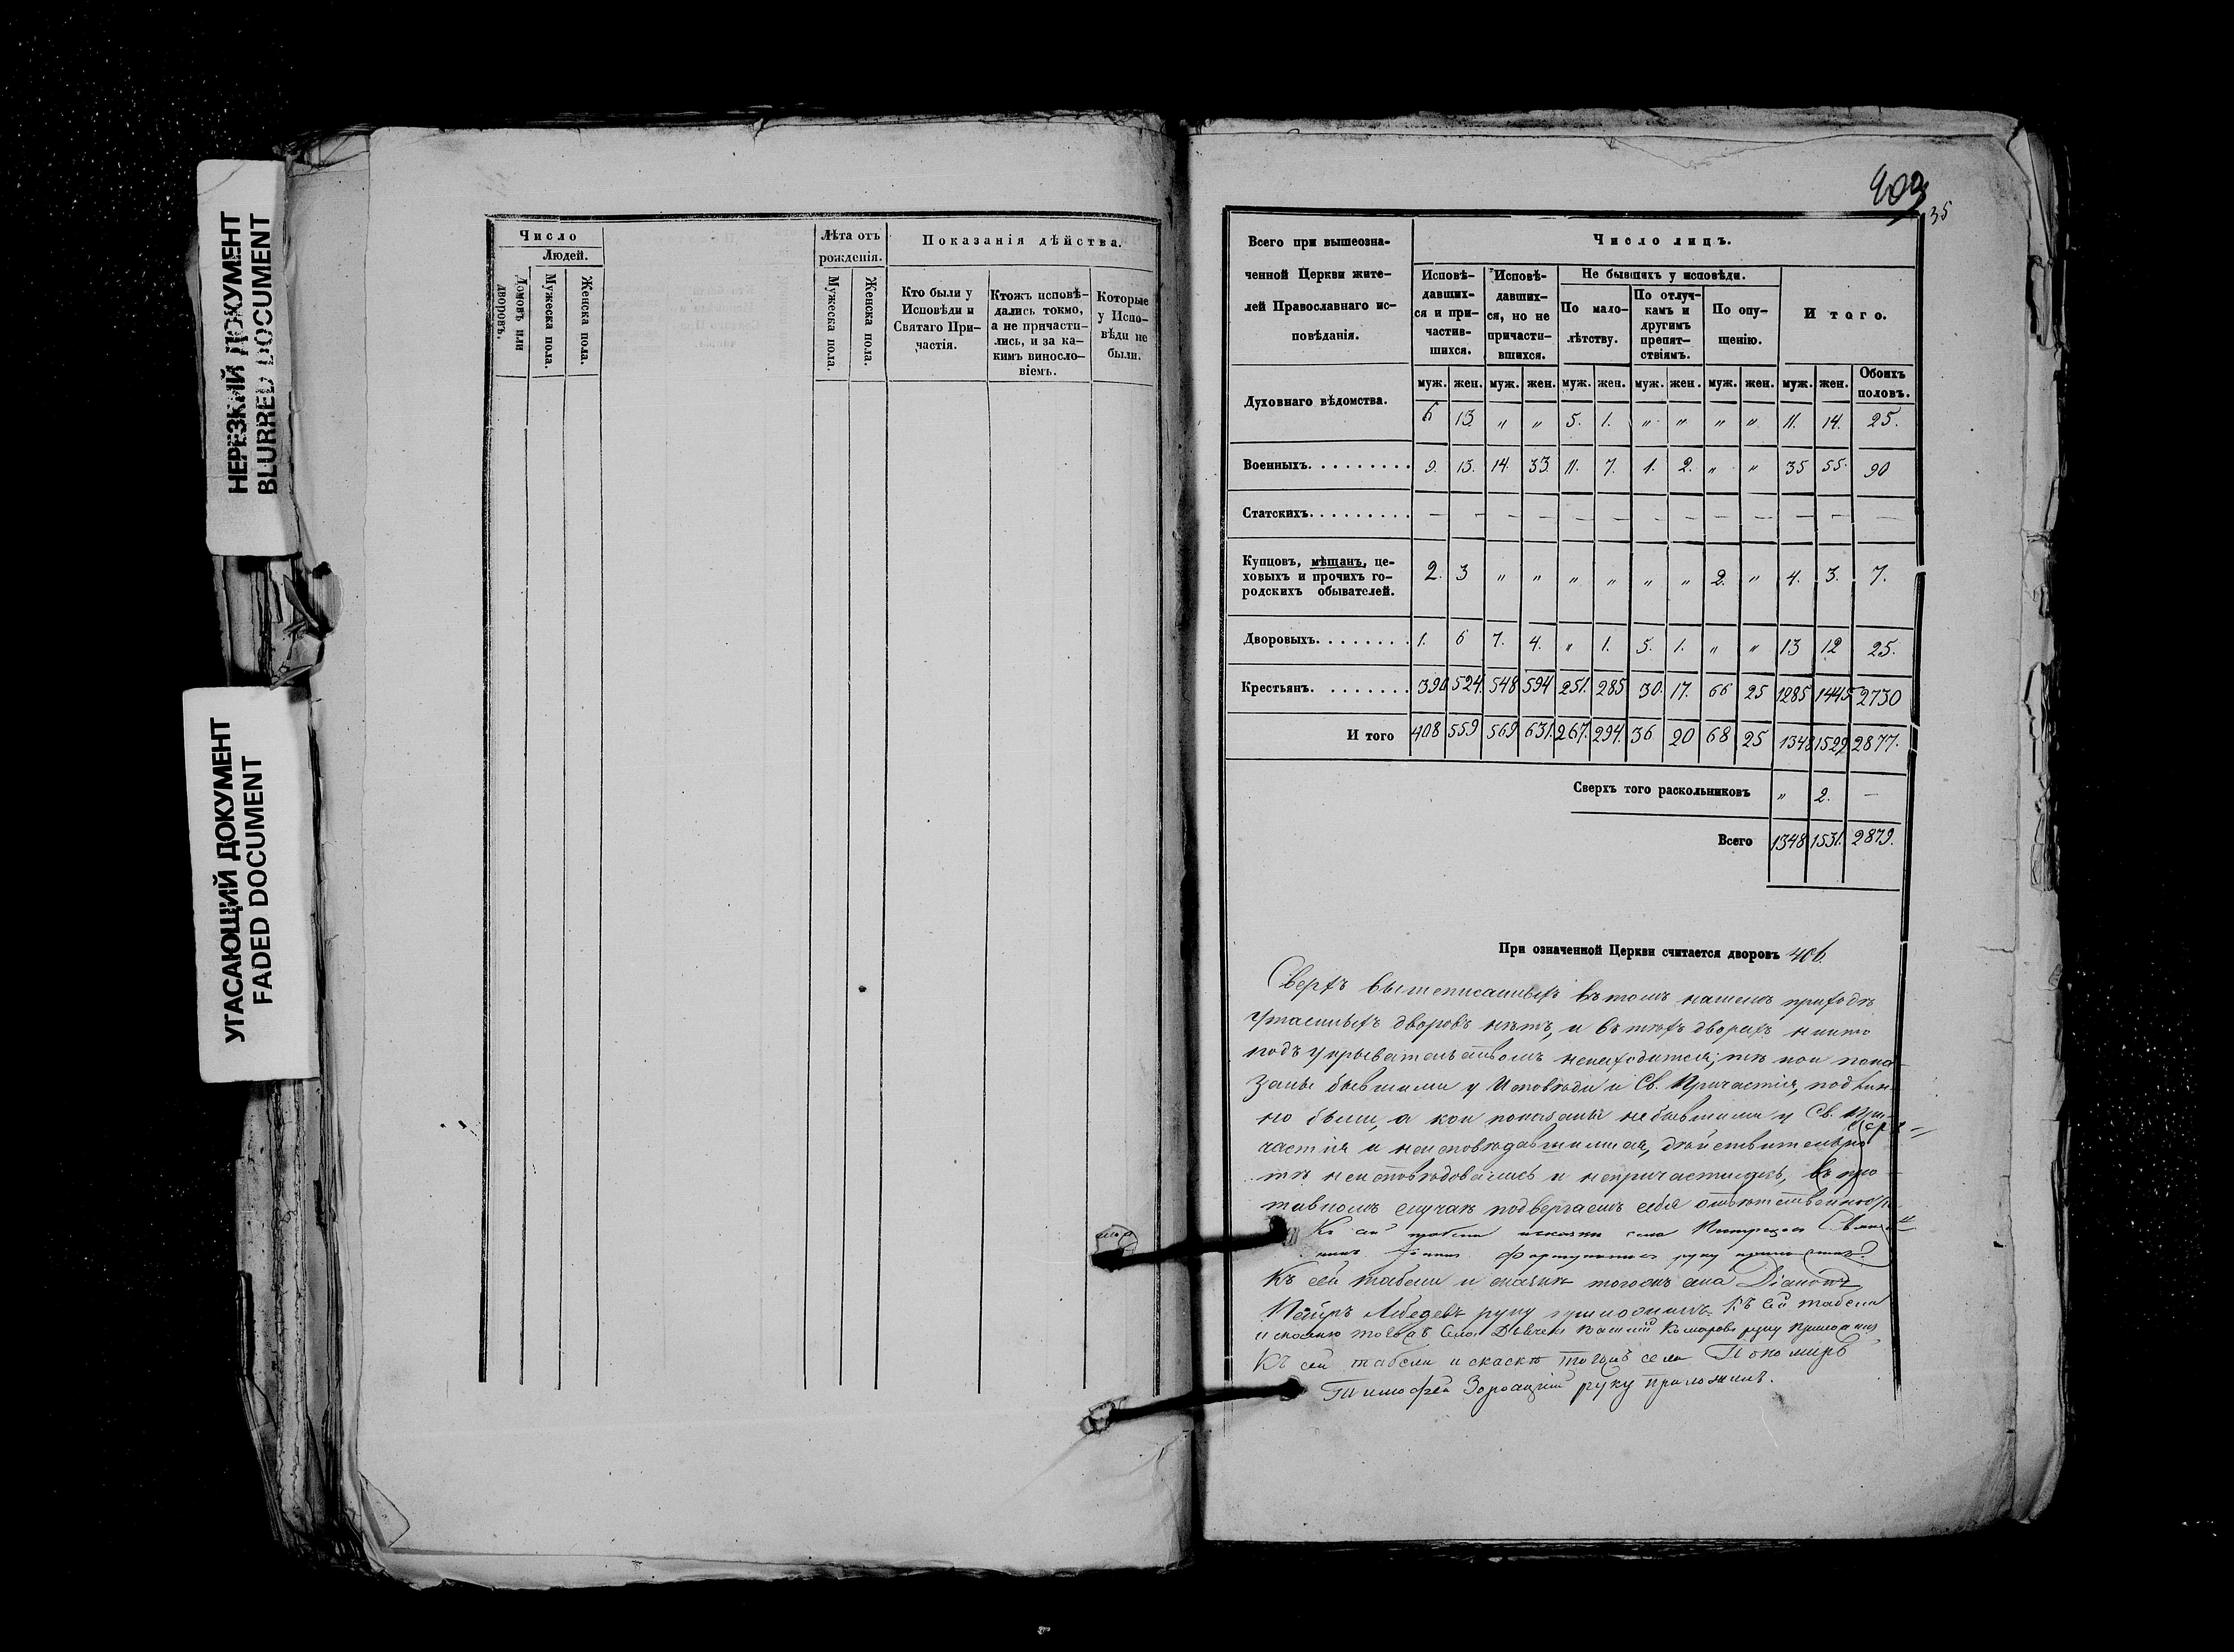 НЕРЕЗКИЙ ДОКУМЕНТ
BLURRED DOCUMENT
УГАСАЮЩИЙ ДОКУМЕНТ
FADED DOCUMENT
Число
Людей.
Домовъ или дворовъ.
Мужеска пола.
Женска пола.
Лѣта отъ рожденія.
Мужеска пола.
Женска пола.
Показанія дѣйства.
Кто были у Исповѣди и Святаго Причастія.
Ктожъ исповѣдались токмо, а не причастились, и за какимъ винословіемъ.
Которые у Исповѣди не были.
35
Всего при вышеозна-
ченной Церкви жите-
лей Православнаго ис-
повѣданія.
Число лицъ.
Исповѣ-
давших-
ся и при-
частив-
шихся.
Исповѣ-
давших-
ся, но не
причасти-
вшихся.
Не бывшихъ у исповѣди.
По мало-
лѣтству.
По отлуч-
камъ и
другимъ
препят-
ствіямъ.
По опу-
щенію.
Итого.
муж. жен. муж. жен. муж. жен. муж. жен. муж. жен. муж. жен. Обоихъ половъ.
Духовнаго вѣдомства. 6 13 „ „ 5. 1. „ „ „ „ 11. 14. 25.
Военныхъ......... 9. 13. 14. 33. 11. 7. 1. 2. „ „ 35 55. 90
Статскихъ......... — — — — — — — — — — — — —
Купцовъ, мѣщанъ, це-
ховыхъ и прочихъ го-
родскихъ обывателей. 2. 3 „ „ „ „ „ „ 2. „ 4. 3. 7.
Дворовыхъ........ 1. 6 7. 4. „ 1. 5. 1. „ „ 13 12 25.
Крестьянъ........ 390 524. 548 594 251. 285 30. 17. 66 25 1285 1445 2730
И того 408 559 569 631. 267. 294. 36 20 68 25 1348 1529 2877.
Сверхъ того раскольниковъ „ 2. —
Всего 1348 1531. 2879.
При означенной Церкви считается дворовъ 406.
Сверхъ вышеписанныхъ въ томъ нашемъ приходѣ
утаенныхъ дворовъ нѣтъ, и въ тѣхъ дворахъ никто
подъ укрывательствомъ ненаходится; тѣ кои пока-
заны бывшими у Исповѣди и Св. Причастія, подлин-
но были, а кои показаны небывшими у Св. При-
частія и неисповѣдавшимися, дѣйствительно
тѣ неисповѣдовались и непричастились, въ про-
тивномъ случаѣ подвергаемъ себя отвѣтственности
Къ сей табели села Священ-
никъ Іоаннъ руку приложилъ.
Къ сей табели и сказкѣ тогожъ села Діаконъ
Петръ Лебедевъ руку приложилъ. Къ сей табели
и сказкѣ тогожъ села Дьячекъ Комаровъ руку приложилъ
Къ сей табели и скаскѣ тогожъ села Пономарь
Тимофей руку приложилъ.